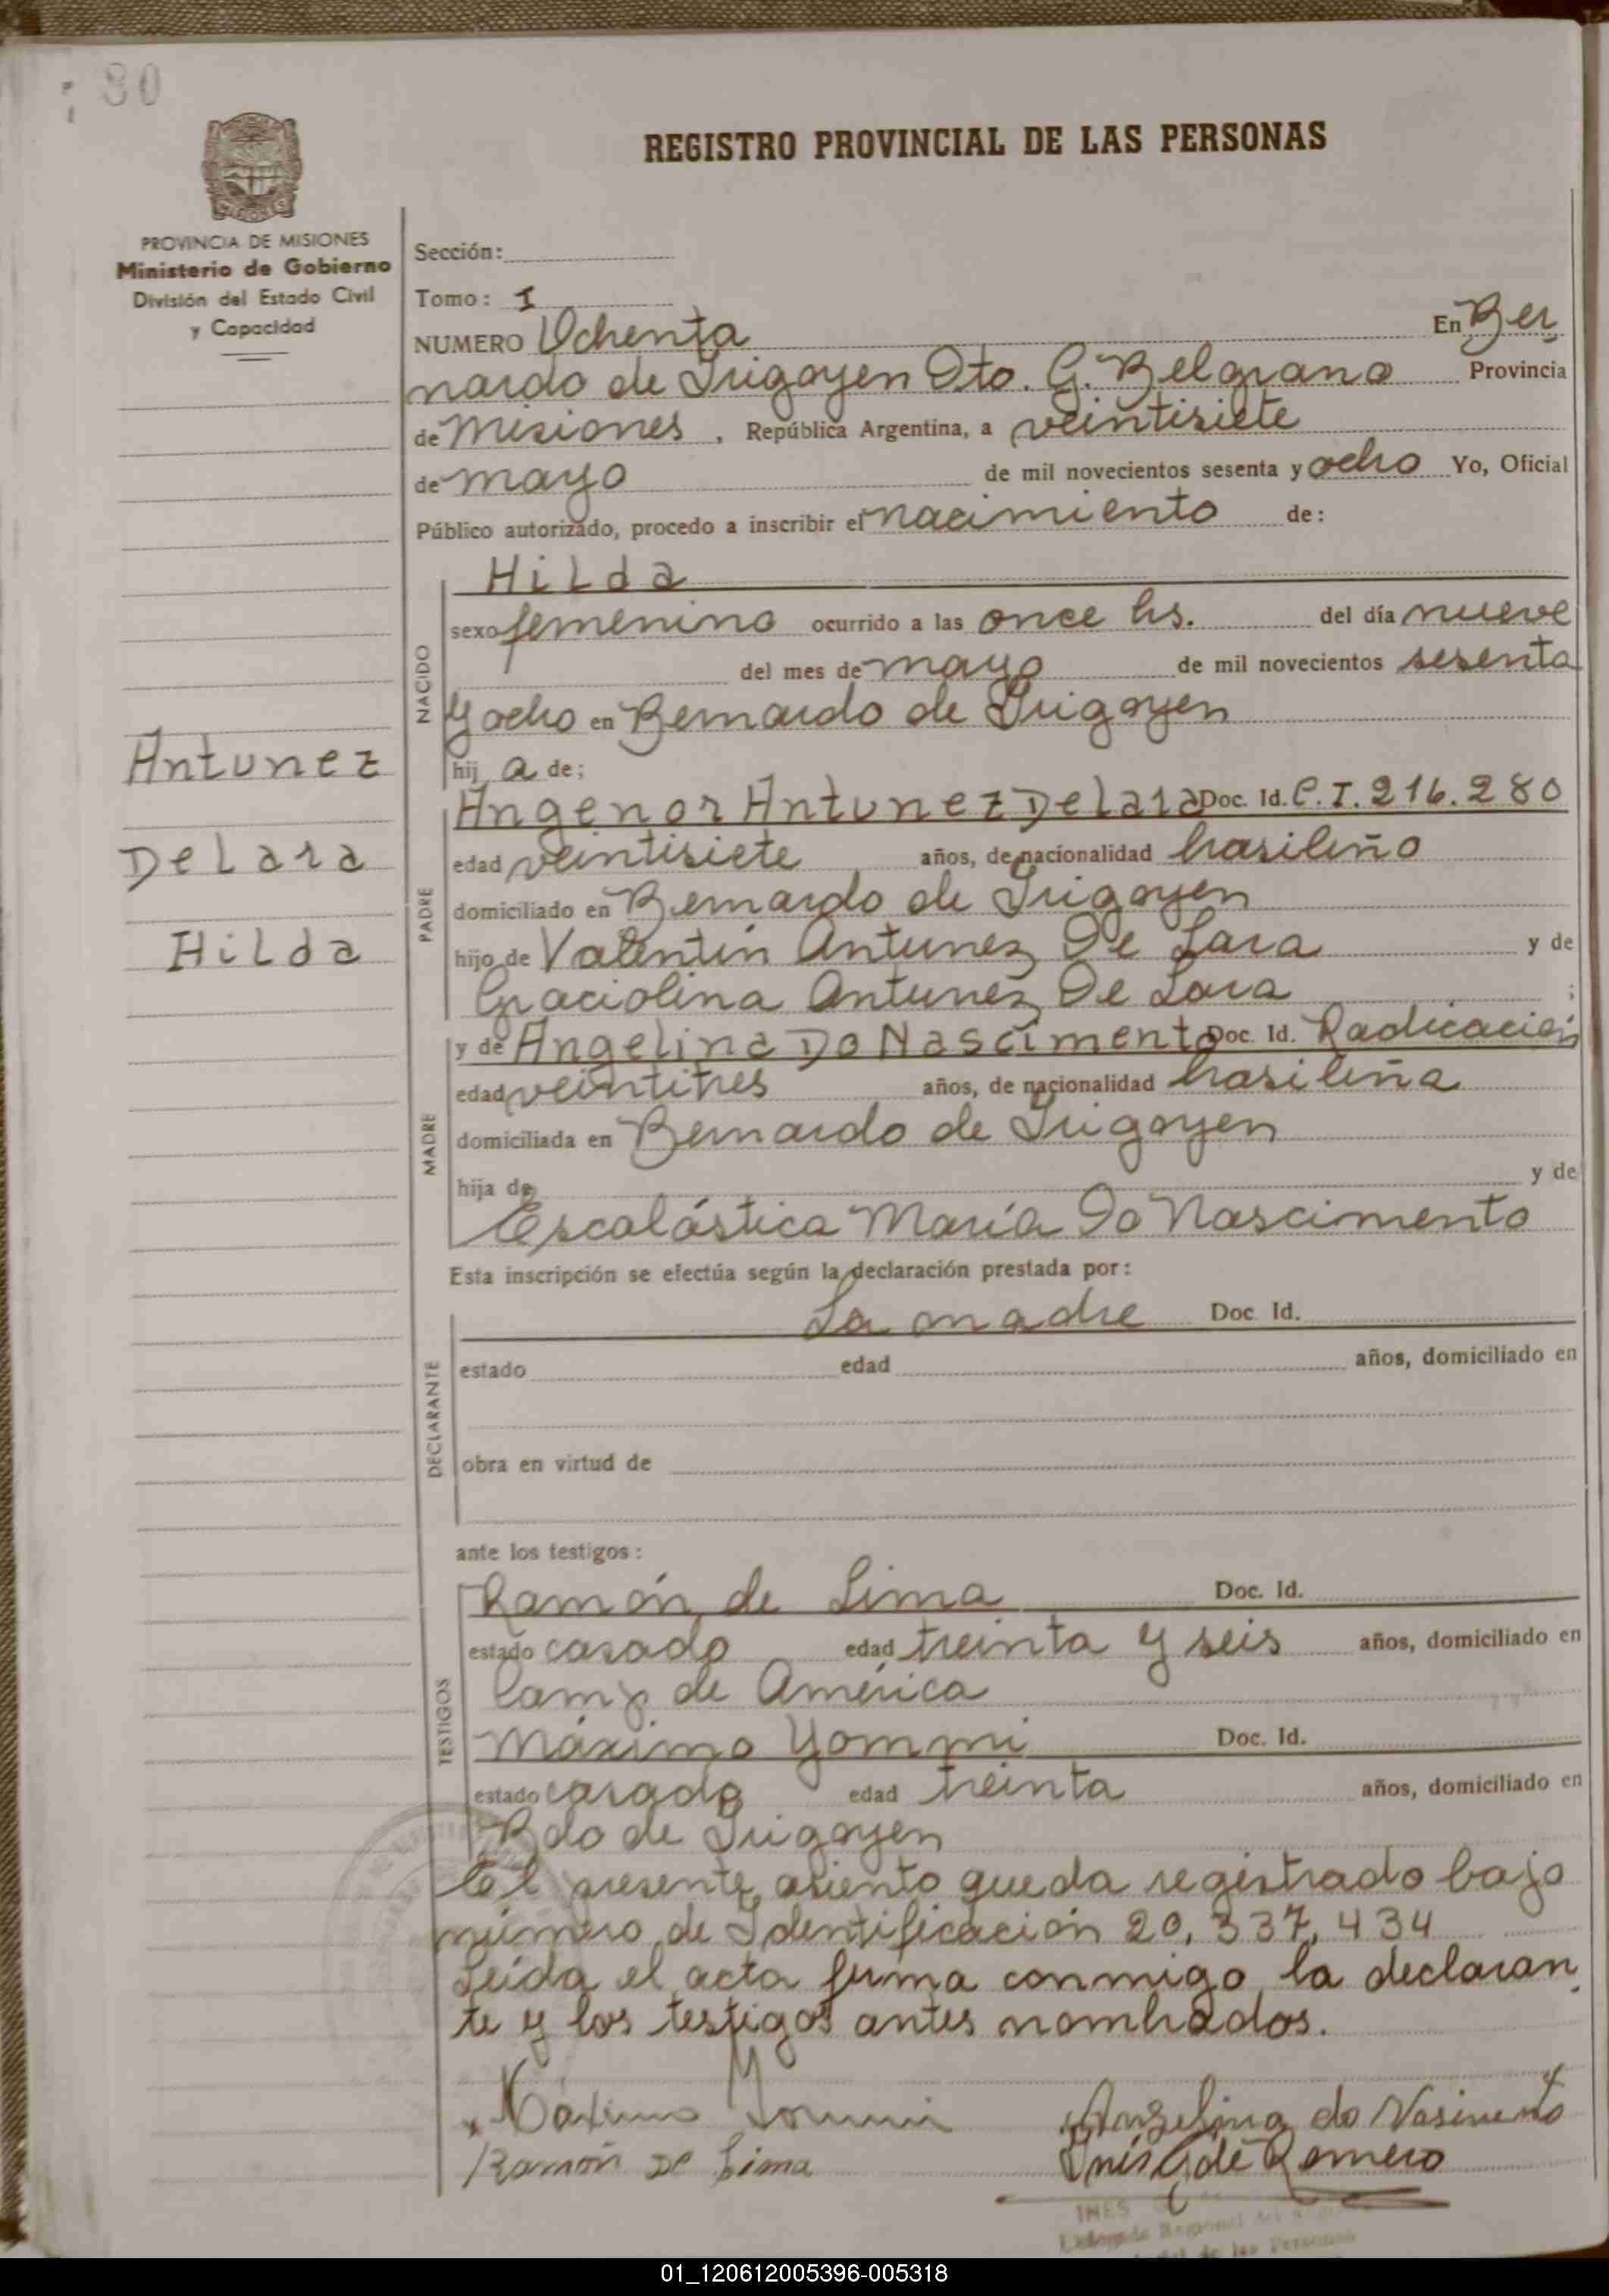 80
REGISTRO PROVINCIAL DE LAS PERSONAS
MISIONES
PROVINCIA DE MISIONES
Ministerio de Gobierno
División del Estado Civil
y Capacidad
Sección:
Tomo: I
NUMERO Ochenta En Ber
nardo de Irigoyen Dto. G. Belgrano Provincia
de Misiones, República Argentina, a veintisiete
de mayo de mil novecientos sesenta y ocho Yo, Oficial
Público autorizado, procedo a inscribir el nacimiento de:
Hilda
NACIDO
sexo femenino ocurrido a las once hs. del día nueve
del mes de mayo de mil novecientos sesenta
y ocho en Bernardo de Irigoyen
hij a de;
Antunez
De Lara
Hilda
PADRE
Angenor Antunez De Lara Doc. Id. C.I. 216.280
edad veintisiete años, de nacionalidad brasileño
domiciliado en Bernardo de Irigoyen
hijo de Valentín Antunez De Lara y de
Graciolina Antunez De Lara ;
MADRE
y de Angelina Do Nascimento Doc. Id. Radicación
edad veintitres años, de nacionalidad brasileña
domiciliada en Bernardo de Irigoyen
hija de y de
Escolástica María Do Nascimento
Esta inscripción se efectúa según la declaración prestada por:
DECLARANTE
La madre Doc. Id.
estado edad años, domiciliado en
obra en virtud de
ante los testigos:
TESTIGOS
Ramón de Lima Doc. Id.
estado casado edad treinta y seis años, domiciliado en
Camp de América
Máximo Yommi Doc. Id.
estado casado edad treinta años, domiciliado en
Bdo de Irigoyen
El presente asiento queda registrado bajo
número de Identificación 20.337.434
Leída el acta firma conmigo la declaran
te y los testigos antes nombrados.
Máximo Yommi Angelina do Nasimento
Ramón De Lima Inés G de Romero
INES
Delegada Regional del
de las Personas
01_120612005396-005318